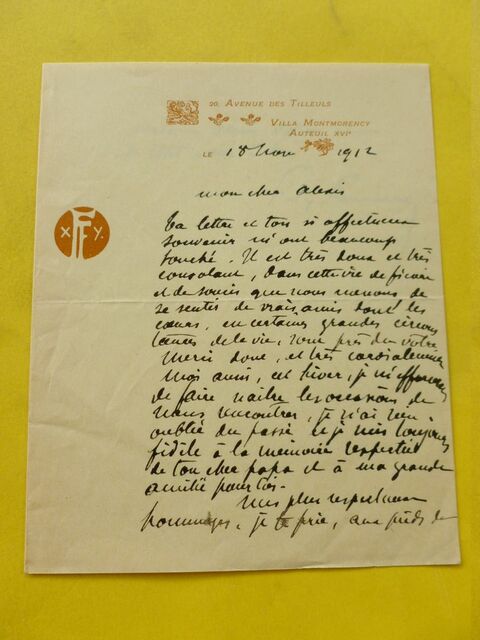 20, AVENUE DES TILLEULS
VILLA MONTMORENCY
AUTEUIL XVIe
LE 18 Nov 1912
mon cher Alexis
X F Y.
Ta lettre et ton si affectueux
souvenir m'ont beaucoup
touché. Il est très doux et très
consolant, dans cette vie de fièvre
et de soucis que nous menons de
se sentir de vrais amis dont les
cœurs, en certaines grandes circons
tances de la vie, sont près du vôtre
Merci donc, et très cordialement
Mon ami, cet hiver, je m'efforcerai
de faire naître les occasions de
nous rencontrer, je n'ai rien
oublié du passé et je suis toujours
fidèle à la mémoire respectée
de ton cher papa et à ma grande
amitié pour toi.
Mes plus respectueux
hommages, je te prie, aux pieds de